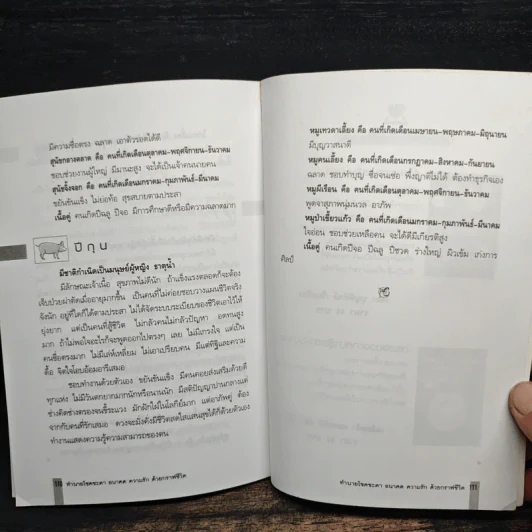 มีความซื่อตรง ฉลาด เอาตัวรอดได้ดี
สุนัขกลางตลาด คือ คนที่เกิดเดือนตุลาคม-พฤศจิกายน-ธันวาคม
ชอบช่วยงานผู้ใหญ่ มีมานะสูง จะได้เป็นเจ้าคนนายคน
สุนัขจิ้งจอก คือ คนที่เกิดเดือนมกราคม-กุมภาพันธ์-มีนาคม
ขยันขันแข็ง ไม่ย่อท้อ สุขสบายตามประสา
เนื้อคู่ คนเกิดปีฉลู ปีจอ มีการศึกษาดีหรือมีความฉลาดมาก
ปีกุน
มีชาติกำเนิดเป็นมนุษย์ผู้หญิง ธาตุน้ำ
มีลักษณะเจ้าเนื้อ สุขภาพไม่ดีนัก ถ้าแข็งแรงตลอดก็จะต้อง
เจ็บป่วยผ่าตัดเมื่ออายุมากขึ้น เป็นคนที่ไม่ค่อยชอบวางแผนชีวิตจริง
จังนัก อยู่ที่ใดก็ได้ตามประสา ไม่ได้จัดระบบระเบียบของชีวิตเอาไว้ให้
ยุ่งยาก แต่เป็นคนที่สู้ชีวิต ไม่กลัวคนไม่กลัวปัญหา อดทนสูง
มาก ถ้าไม่พอใจอะไรก็จะพูดออกไปตรงๆ เลย ไม่มีเกรงใจ แต่เป็น
คนซื่อตรงมาก ไม่มีเล่ห์เหลี่ยม ไม่เอาเปรียบคน มีแต่ทิฐิและความ
ดื้อ จิตใจโอบอ้อมอารีเสมอ
ชอบทำงานด้วยตัวเอง ขยันขันแข็ง มีคนคอยส่งเสริมด้วยดี
ทุกแห่ง ไม่มีวันตกยากมากนักหรือนานนัก มีสติปัญญาปานกลางแต่
ช่างคิดช่างตรองจนขี้ระแวง มักฝักใฝ่ในโลกีย์มาก แต่อาภัพคู่ ต้อง
จากกับคนที่รักเสมอ ดวงจะมั่งคั่งมีชีวิตสดใสแสนสุขได้ก็ด้วยตัวเอง
ทำงานแสดงความรู้ความสามารถของตน
110 ทำนายโชคชะตา อนาคต ความรัก ด้วยกราฟชีวิต
หมูเทวดาเลี้ยง คือ คนที่เกิดเดือนเมษายน-พฤษภาคม-มิถุนายน
มีบุญวาสนาดี
หมูคนเลี้ยง คือ คนที่เกิดเดือนกรกฎาคม-สิงหาคม-กันยายน
ฉลาด ชอบทำบุญ ชื่อจนเซ่อ พึ่งญาติไม่ได้ ต้องทำธุรกิจเอง
หมูมีเรือน คือ คนที่เกิดเดือนตุลาคม-พฤศจิกายน-ธันวาคม
พูดจาสุภาพนุ่มนวล อาภัพ
หมูป่าเขี้ยวแก้ว คือ คนที่เกิดเดือนมกราคม-กุมภาพันธ์-มีนาคม
ใจอ่อน ชอบช่วยเหลือคน จะได้ดีมีเกียรติสูง
เนื้อคู่ คนเกิดปีจอ ปีฉลู ปีชวด ร่างใหญ่ ผิวเข้ม เก่งการ
ศิลป์
ทำนายโชคชะตา อนาคต ความรัก ด้วยกราฟชีวิต 111